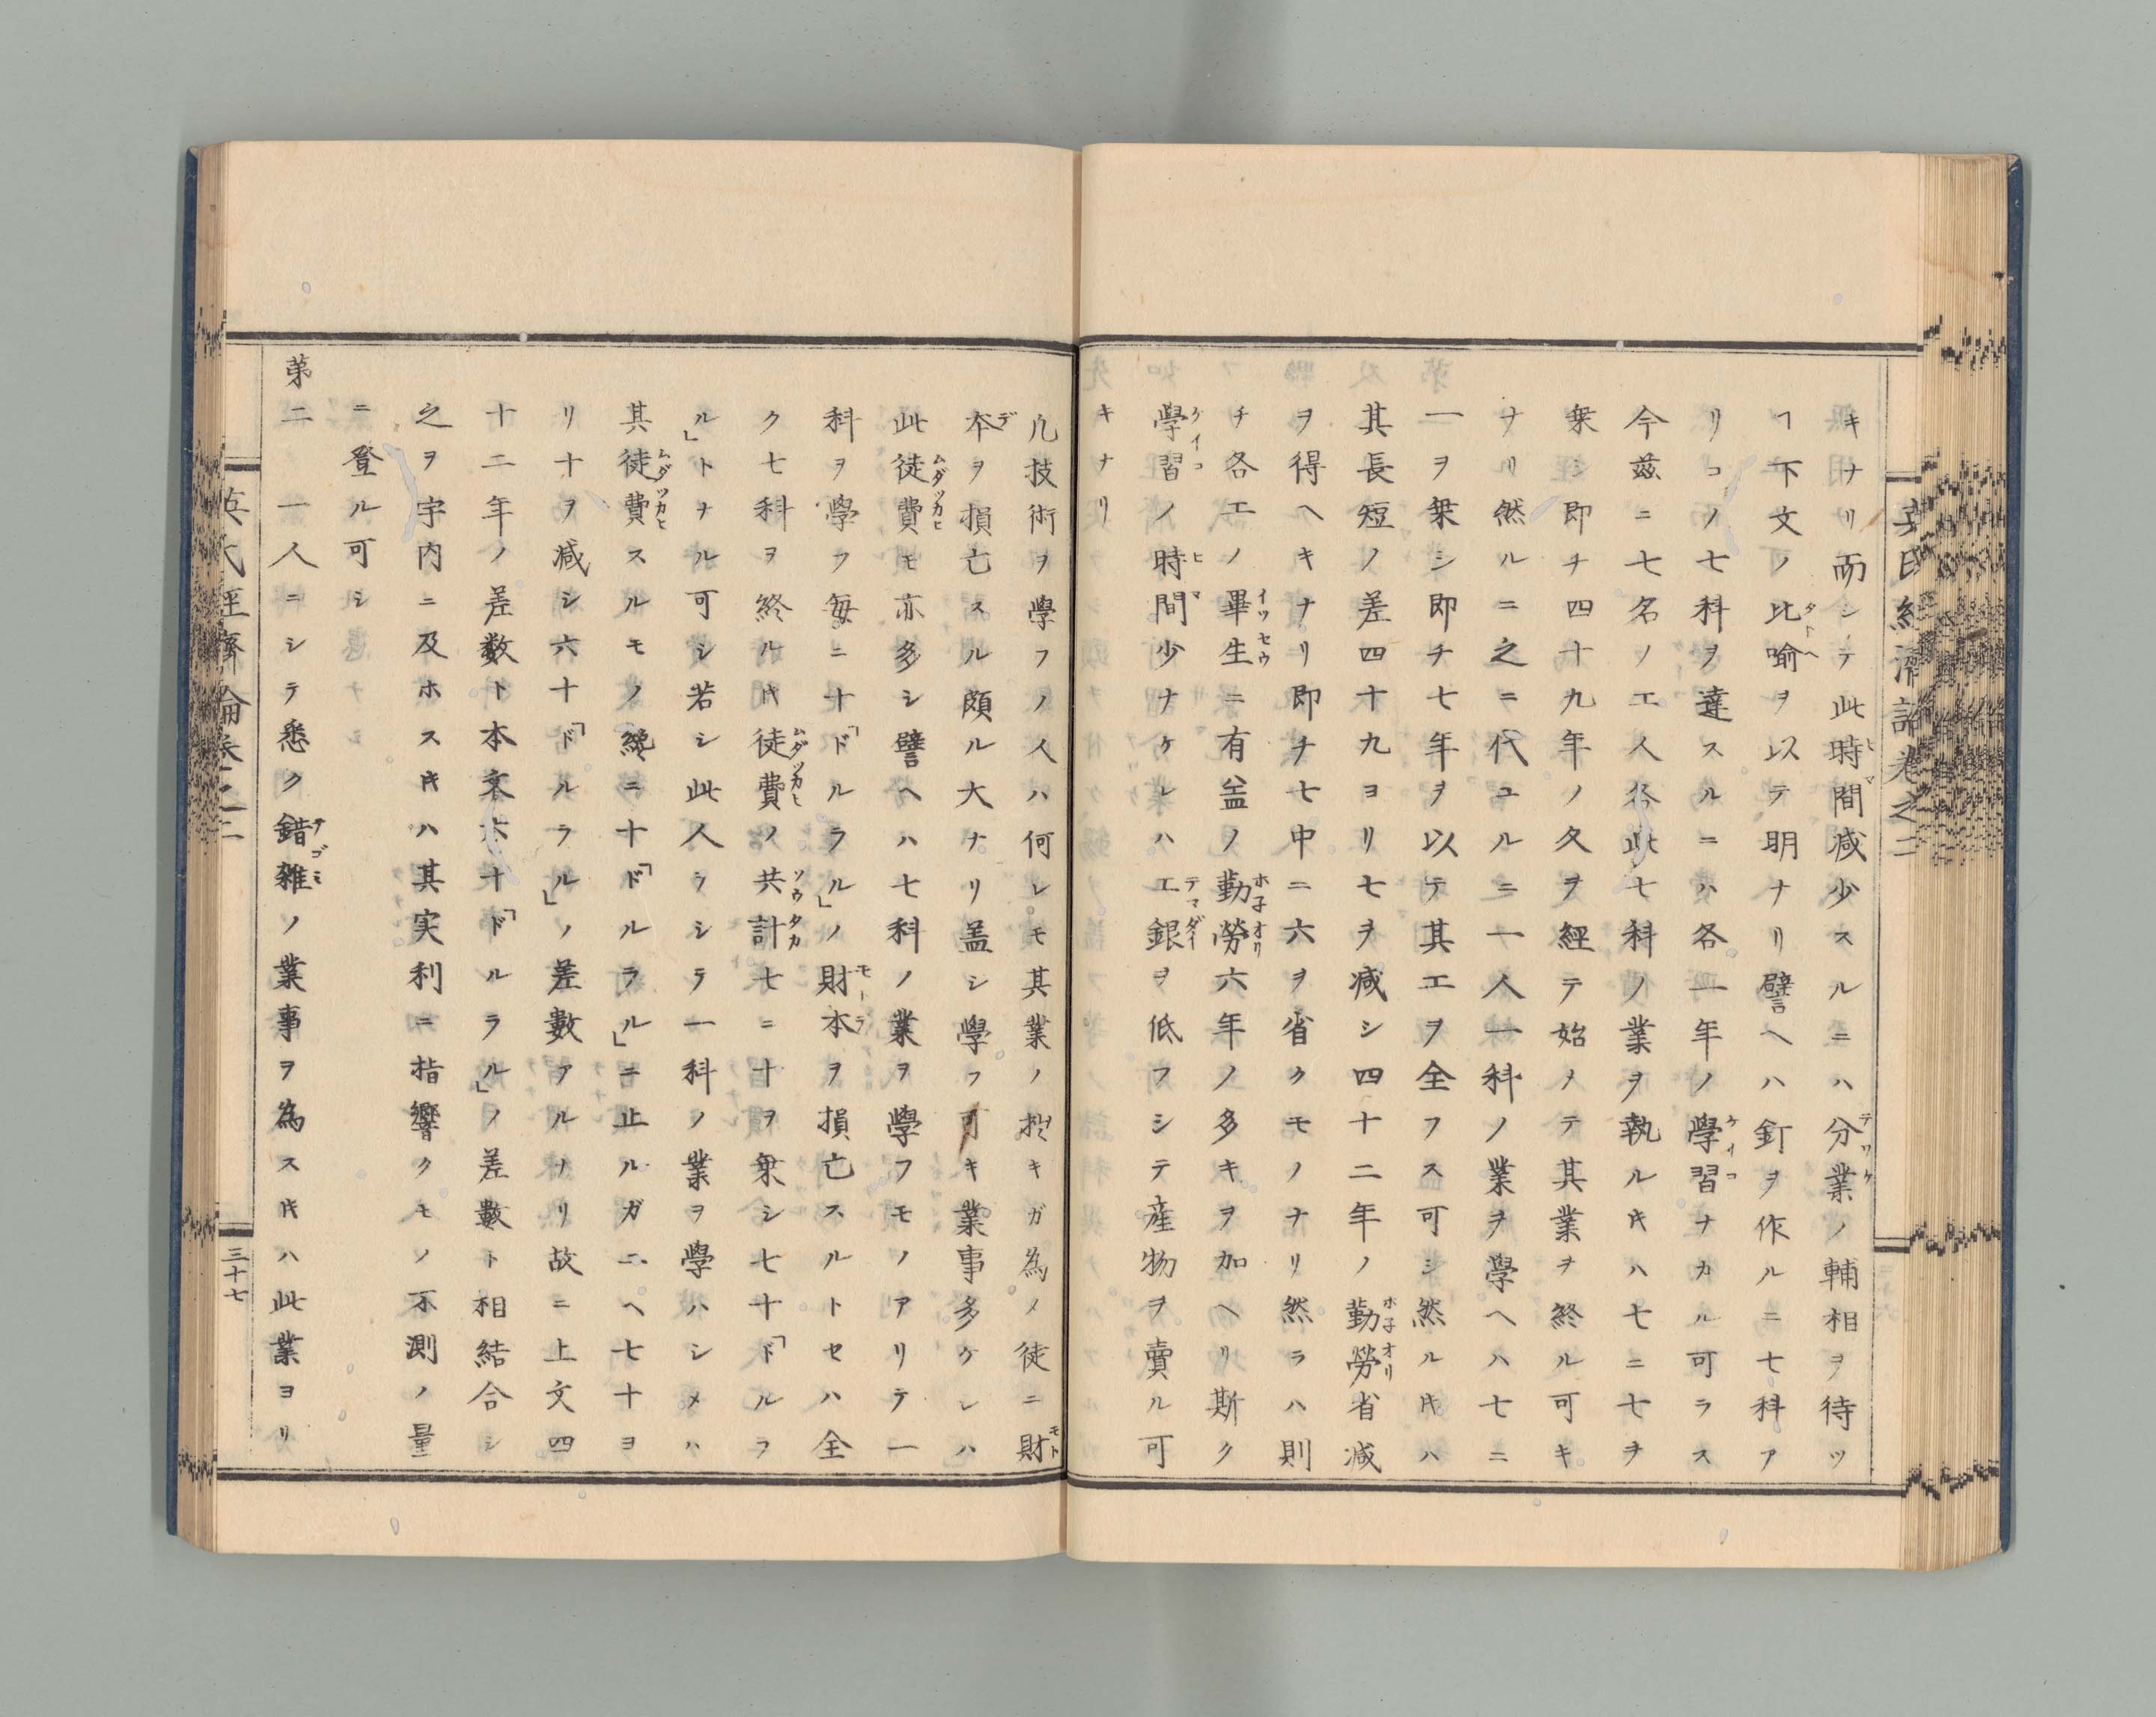 キナリ而シテ此時間減少スルニハ分業ノ輔相ヲ待ツ
ヿ下文ノ比喩ヲ以テ明ナリ譬ヘハ釘ヲ作ルニ七科ア
リコノ七科ヲ達スルニハ各一年ノ學習ナカル可ラス
今茲ニ七名ノ工人各此七科ノ業ヲ執ルキハ七ニ七ヲ
乗シ即チ四十九年ノ久ヲ經テ始メテ其業ヲ終ル可キ
ナリ然ルニ之ニ代ユルニ一人一科ノ業ヲ學ヘハ七ニ
一ヲ乗シ即チ七年ヲ以テ其工ヲ全フス可シ然ルキハ
其長短ノ差四十九ヨリ七ヲ減シ四十二年ノ勤勞省減
ヲ得ヘキナリ即チ七中ニ六ヲ省クモノナリ然ラハ則
チ各工ノ畢生ニ有益ノ勤勞六年ノ多キヲ加ヘリ斯ク
學習ノ時間少ナケレハ工銀ヲ低フシテ産物ヲ賣ル可
キナリ
凢技術ヲ學フノ人ハ何レモ其業ノ拙キガ為メ徒ニ財
本ヲ損亡スル頗ル大ナリ盖シ學フ可キ業事多ケレハ
此徒費モ亦多シ譬ヘハ七科ノ業ヲ學フモノアリテ一
科ヲ學フ毎ニ十「ドルラル」ノ財本ヲ損亡スルトセハ全
ク七科ヲ終ルキ徒費ノ共計七ニ十ヲ乗シ七十「ドルラ
ル」トナル可シ若シ此人ヲシテ一科ノ業ヲ學ハシメハ
其徒費スルモノ纔ニ十「ドルラル」ニ止ルガニヘ七十ヨ
リ十ヲ減シ六十「ドルラル」ノ差數アルナリ故ニ上文四
十二年ノ差数ト本文六十「ドルラル」ノ差數ト相結合シ
之ヲ宇内ニ及ホスキハ其実利ニ指響クモノ不測ノ量
ニ登ル可シ
第二 一人ニシテ悉ク錯雑ノ業事ヲ為スキハ此業ヨリ
英氏経濟論巻之二
三十七